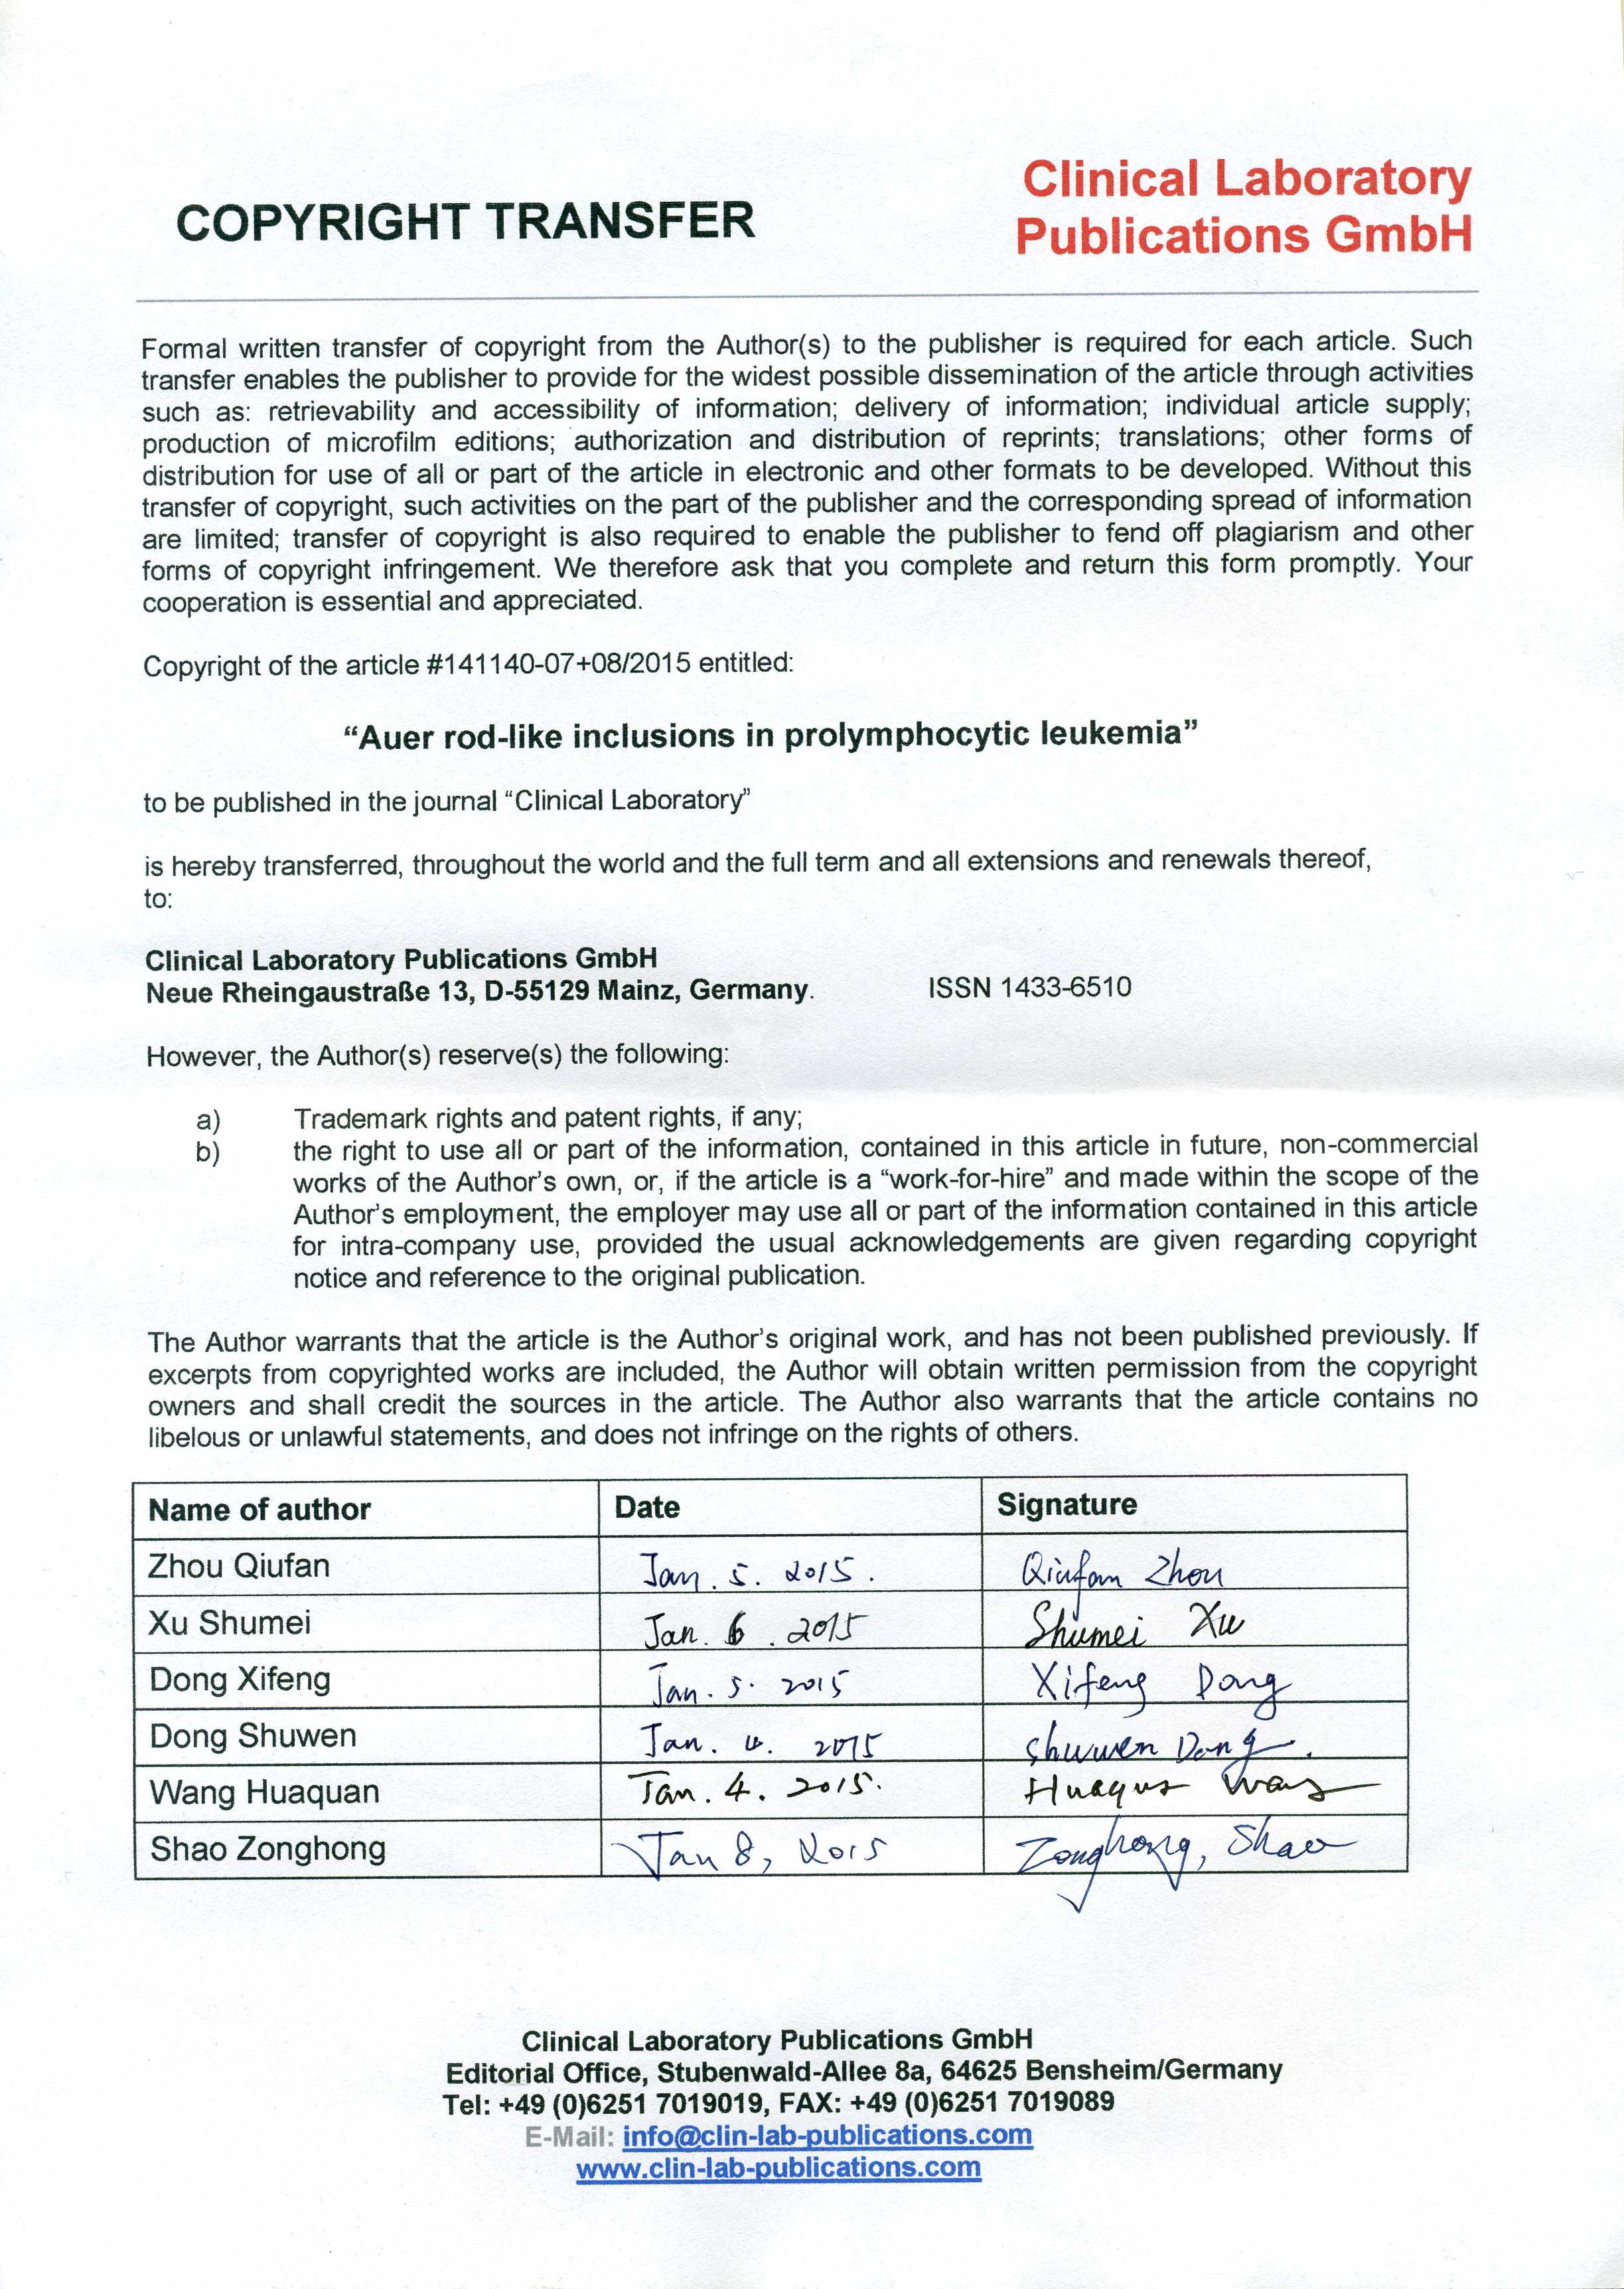 COPYRIGHT TRANSFER
Clinical Laboratory
Publications GmbH
Formal written transfer of copyright from the Author(s) to the publisher is required for each article. Such
transfer enables the publisher to provide for the widest possible dissemination of the article through activities
such as: retrievability and accessibility of information; delivery of information; individual article supply;
production of microfilm editions; authorization and distribution of reprints; translations; other forms of
distribution for use of all or part of the article in electronic and other formats to be developed. Without this
transfer of copyright, such activities on the part of the publisher and the corresponding spread of information
are limited; transfer of copyright is also required to enable the publisher to fend off plagiarism and other
forms of copyright infringement. We therefore ask that you complete and return this form promptly. Your
cooperation is essential and appreciated.
Copyright of the article #141140-07+08/2015 entitled:
“Auer rod-like inclusions in prolymphocytic leukemia”
to be published in the journal “Clinical Laboratory”
is hereby transferred, throughout the world and the full term and all extensions and renewals thereof,
to:
Clinical Laboratory Publications GmbH
Neue Rheingaustraße 13, D-55129 Mainz, Germany. ISSN 1433-6510
However, the Author(s) reserve(s) the following:
a) Trademark rights and patent rights, if any;
b) the right to use all or part of the information, contained in this article in future, non-commercial
works of the Author’s own, or, if the article is a “work-for-hire” and made within the scope of the
Author’s employment, the employer may use all or part of the information contained in this article
for intra-company use, provided the usual acknowledgements are given regarding copyright
notice and reference to the original publication.
The Author warrants that the article is the Author’s original work, and has not been published previously. If
excerpts from copyrighted works are included, the Author will obtain written permission from the copyright
owners and shall credit the sources in the article. The Author also warrants that the article contains no
libelous or unlawful statements, and does not infringe on the rights of others.
Name of author Date Signature
Zhou Qiufan Jan. 5. 2015. Qiufan Zhou
Xu Shumei Jan. 6. 2015 Shumei Xu
Dong Xifeng Jan. 5. 2015 Xifeng Dong
Dong Shuwen Jan. 4. 2015 Shuwen Dong.
Wang Huaquan Jan. 4. 2015. Huaquan Wang
Shao Zonghong Jan 8, 2015 Zonghong, Shao
Clinical Laboratory Publications GmbH
Editorial Office, Stubenwald-Allee 8a, 64625 Bensheim/Germany
Tel: +49 (0)6251 7019019, FAX: +49 (0)6251 7019089
E-Mail: info@clin-lab-publications.com
www.clin-lab-publications.com